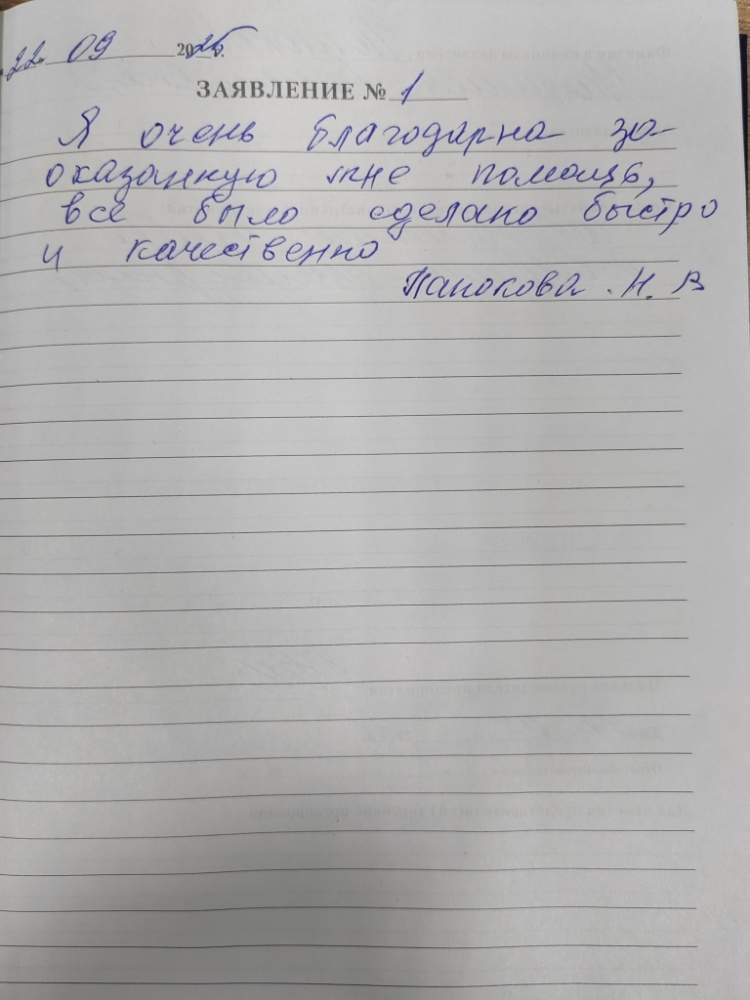 22. 09 2025 г.
ЗАЯВЛЕНИЕ № 1
Я очень благодарна за
оказанную мне помощь,
все было сделано быстро
и качественно
Панокова Н. В